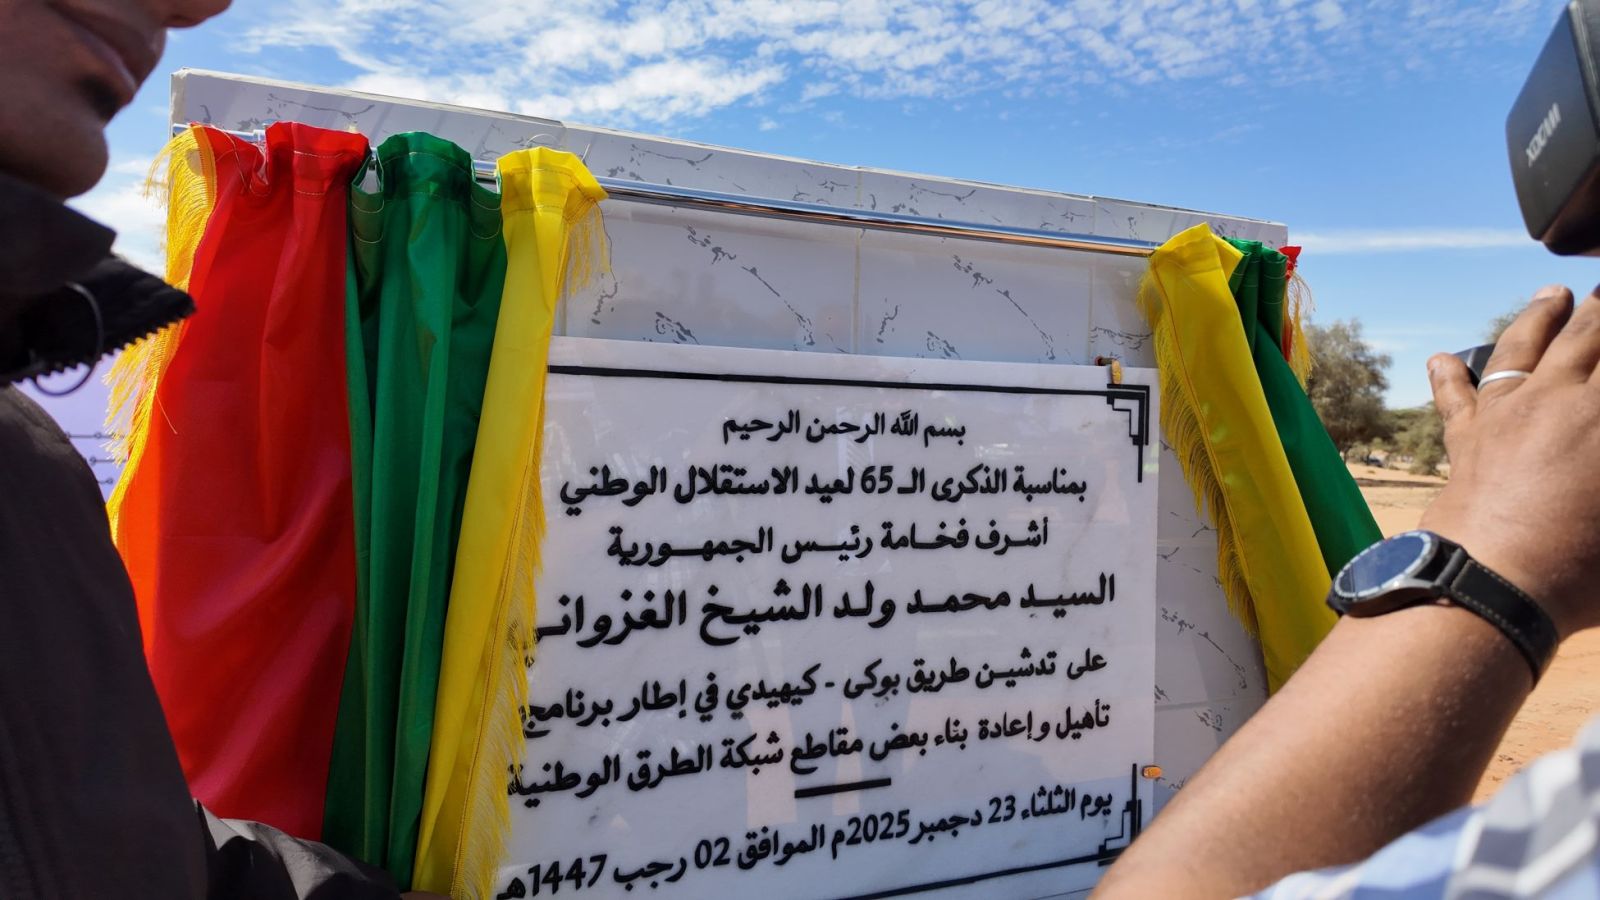 بسم الله الرحمن الرحيم
بمناسبة الذكرى الـ 65 لعيد الاستقلال الوطني
أشرف فخامة رئيس الجمهورية
السيد محمد ولد الشيخ الغزواني
على تدشين طريق بوكى - كيهيدي في إطار برنامج
تأهيل وإعادة بناء بعض مقاطع شبكة الطرق الوطنية
يوم الثلثاء 23 دجمبر 2025م الموافق 02 رجب 1447هـ